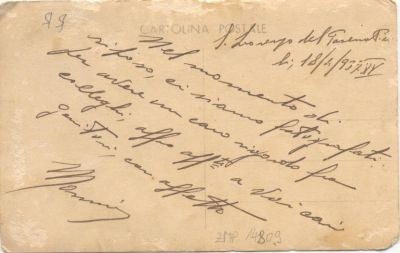 99
CARTOLINA POSTALE
S. Lorenzo del
li, 18/2/937 XV
Nel momento di
riposo, ci siamo fotografati
per avere un caro ricordo fra
colleghi, offro a Voi cari
genitori, con affetto
ZMP 14809